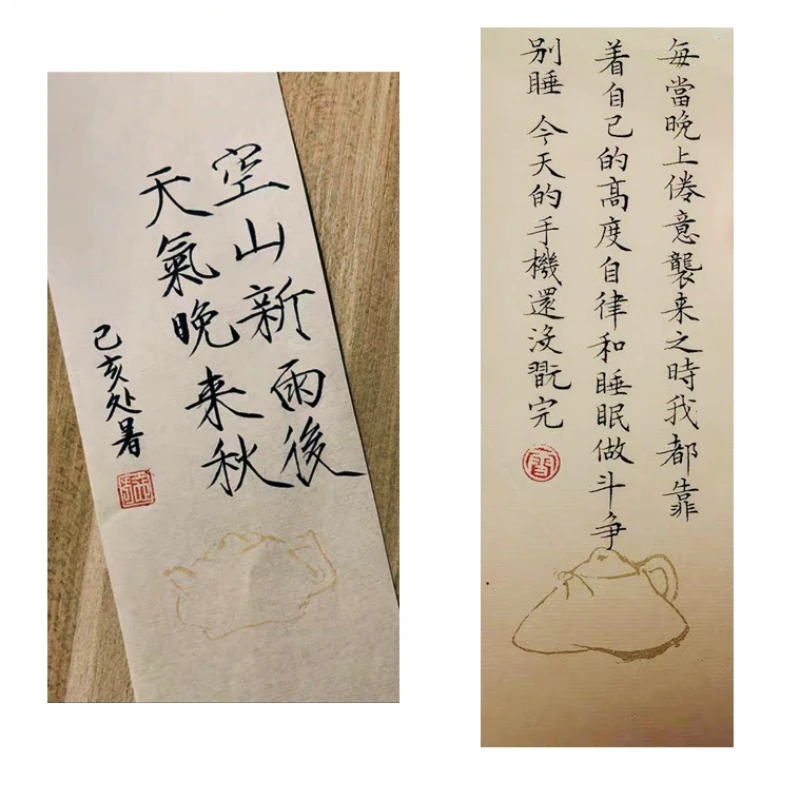 空山新雨後
天氣晚来秋
己亥处暑
每當晚上倦意襲来之時我都靠
着自己的高度自律和睡眠做斗争
别睡 今天的手機還没翫完